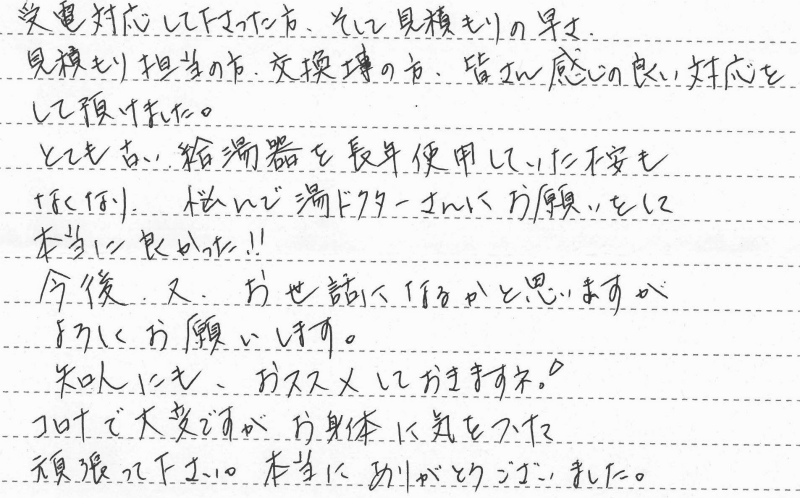 受電対応して下さった方、そして見積もりの早さ、
見積もり担当の方、交換壊の方、皆さん感じの良い対応を
して頂けました。
とても古い給湯器を長年使用していた不安も
なくなり、悩んで湯ドクターさんにお願いをして
本当に良かった!!
今後、又、お世話になるかと思いますが
よろしくお願いします。
知人にも、おススメしておきますネ。
コロナで大変ですがお身体に気をつけて
頑張って下さい。本当にありがとうございました。